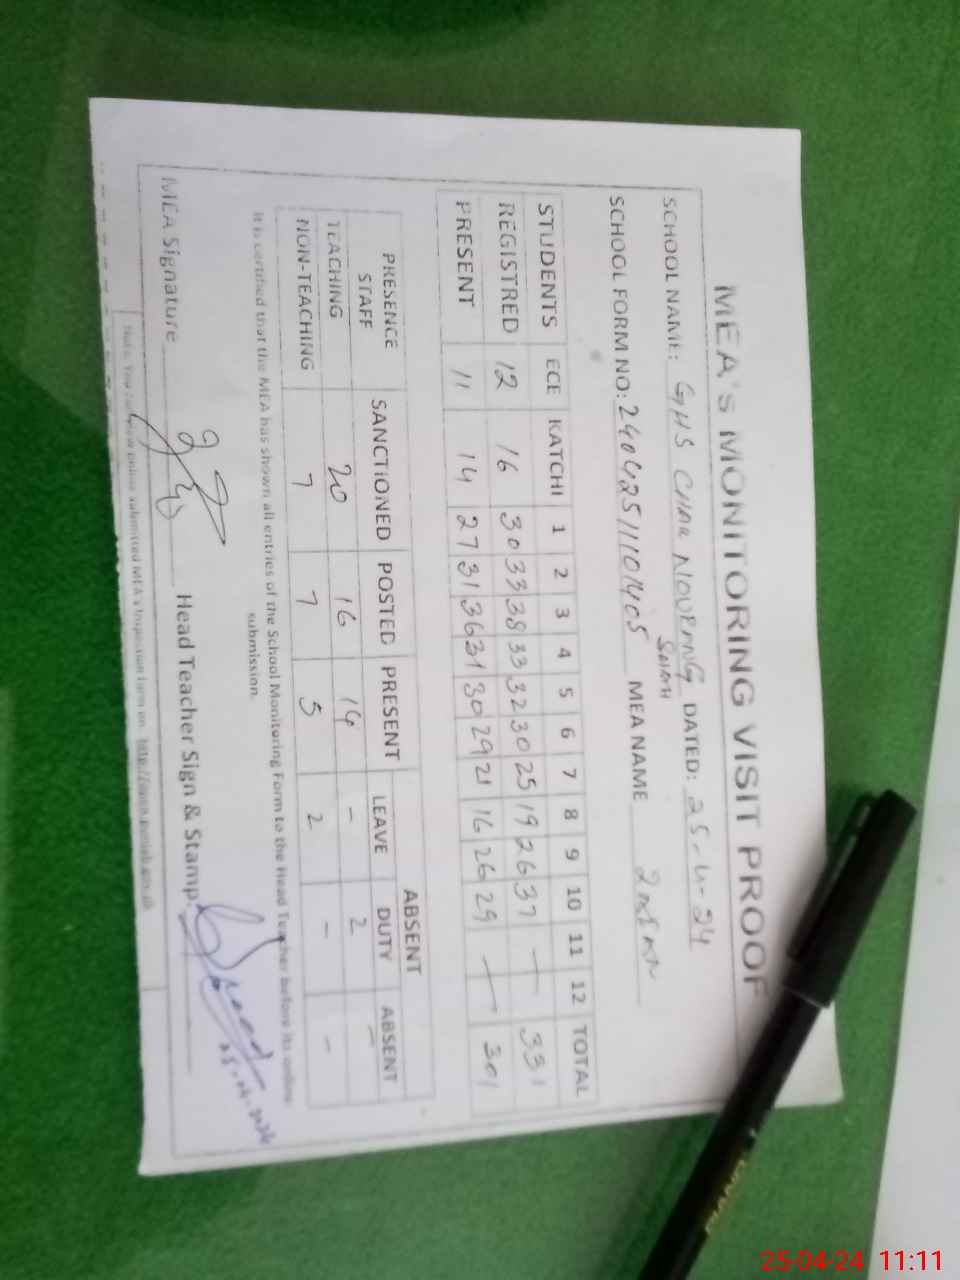 MEA'S MONITORING VISIT PROOF
SCHOOL NAME: GHS CHAK DATED: 25-4-24
SCHOOL FORM NO: MEA NAME
STUDENTS ECE KATCHI 1 2 3 4 5 6 7 8 9 10 11 12 TOTAL
REGISTRED 12 16 30 33 38 33 32 30 25 19 26 37 — — 331
PRESENT 11 14 27 31 36 31 30 29 21 16 26 29 — — 301
PRESENCE STAFF SANCTIONED POSTED PRESENT ABSENT
LEAVE DUTY ABSENT
TEACHING 20 16 14 - 2 -
NON-TEACHING 7 7 5 2 - -
It is certified that the MEA has shown all entries of the School Monitoring Form to the Head Teacher before its online
submission.
MEA Signature Head Teacher Sign & Stamp.
Note: You can view online submitted MEA's Inspection form on
25-04-24 11:11